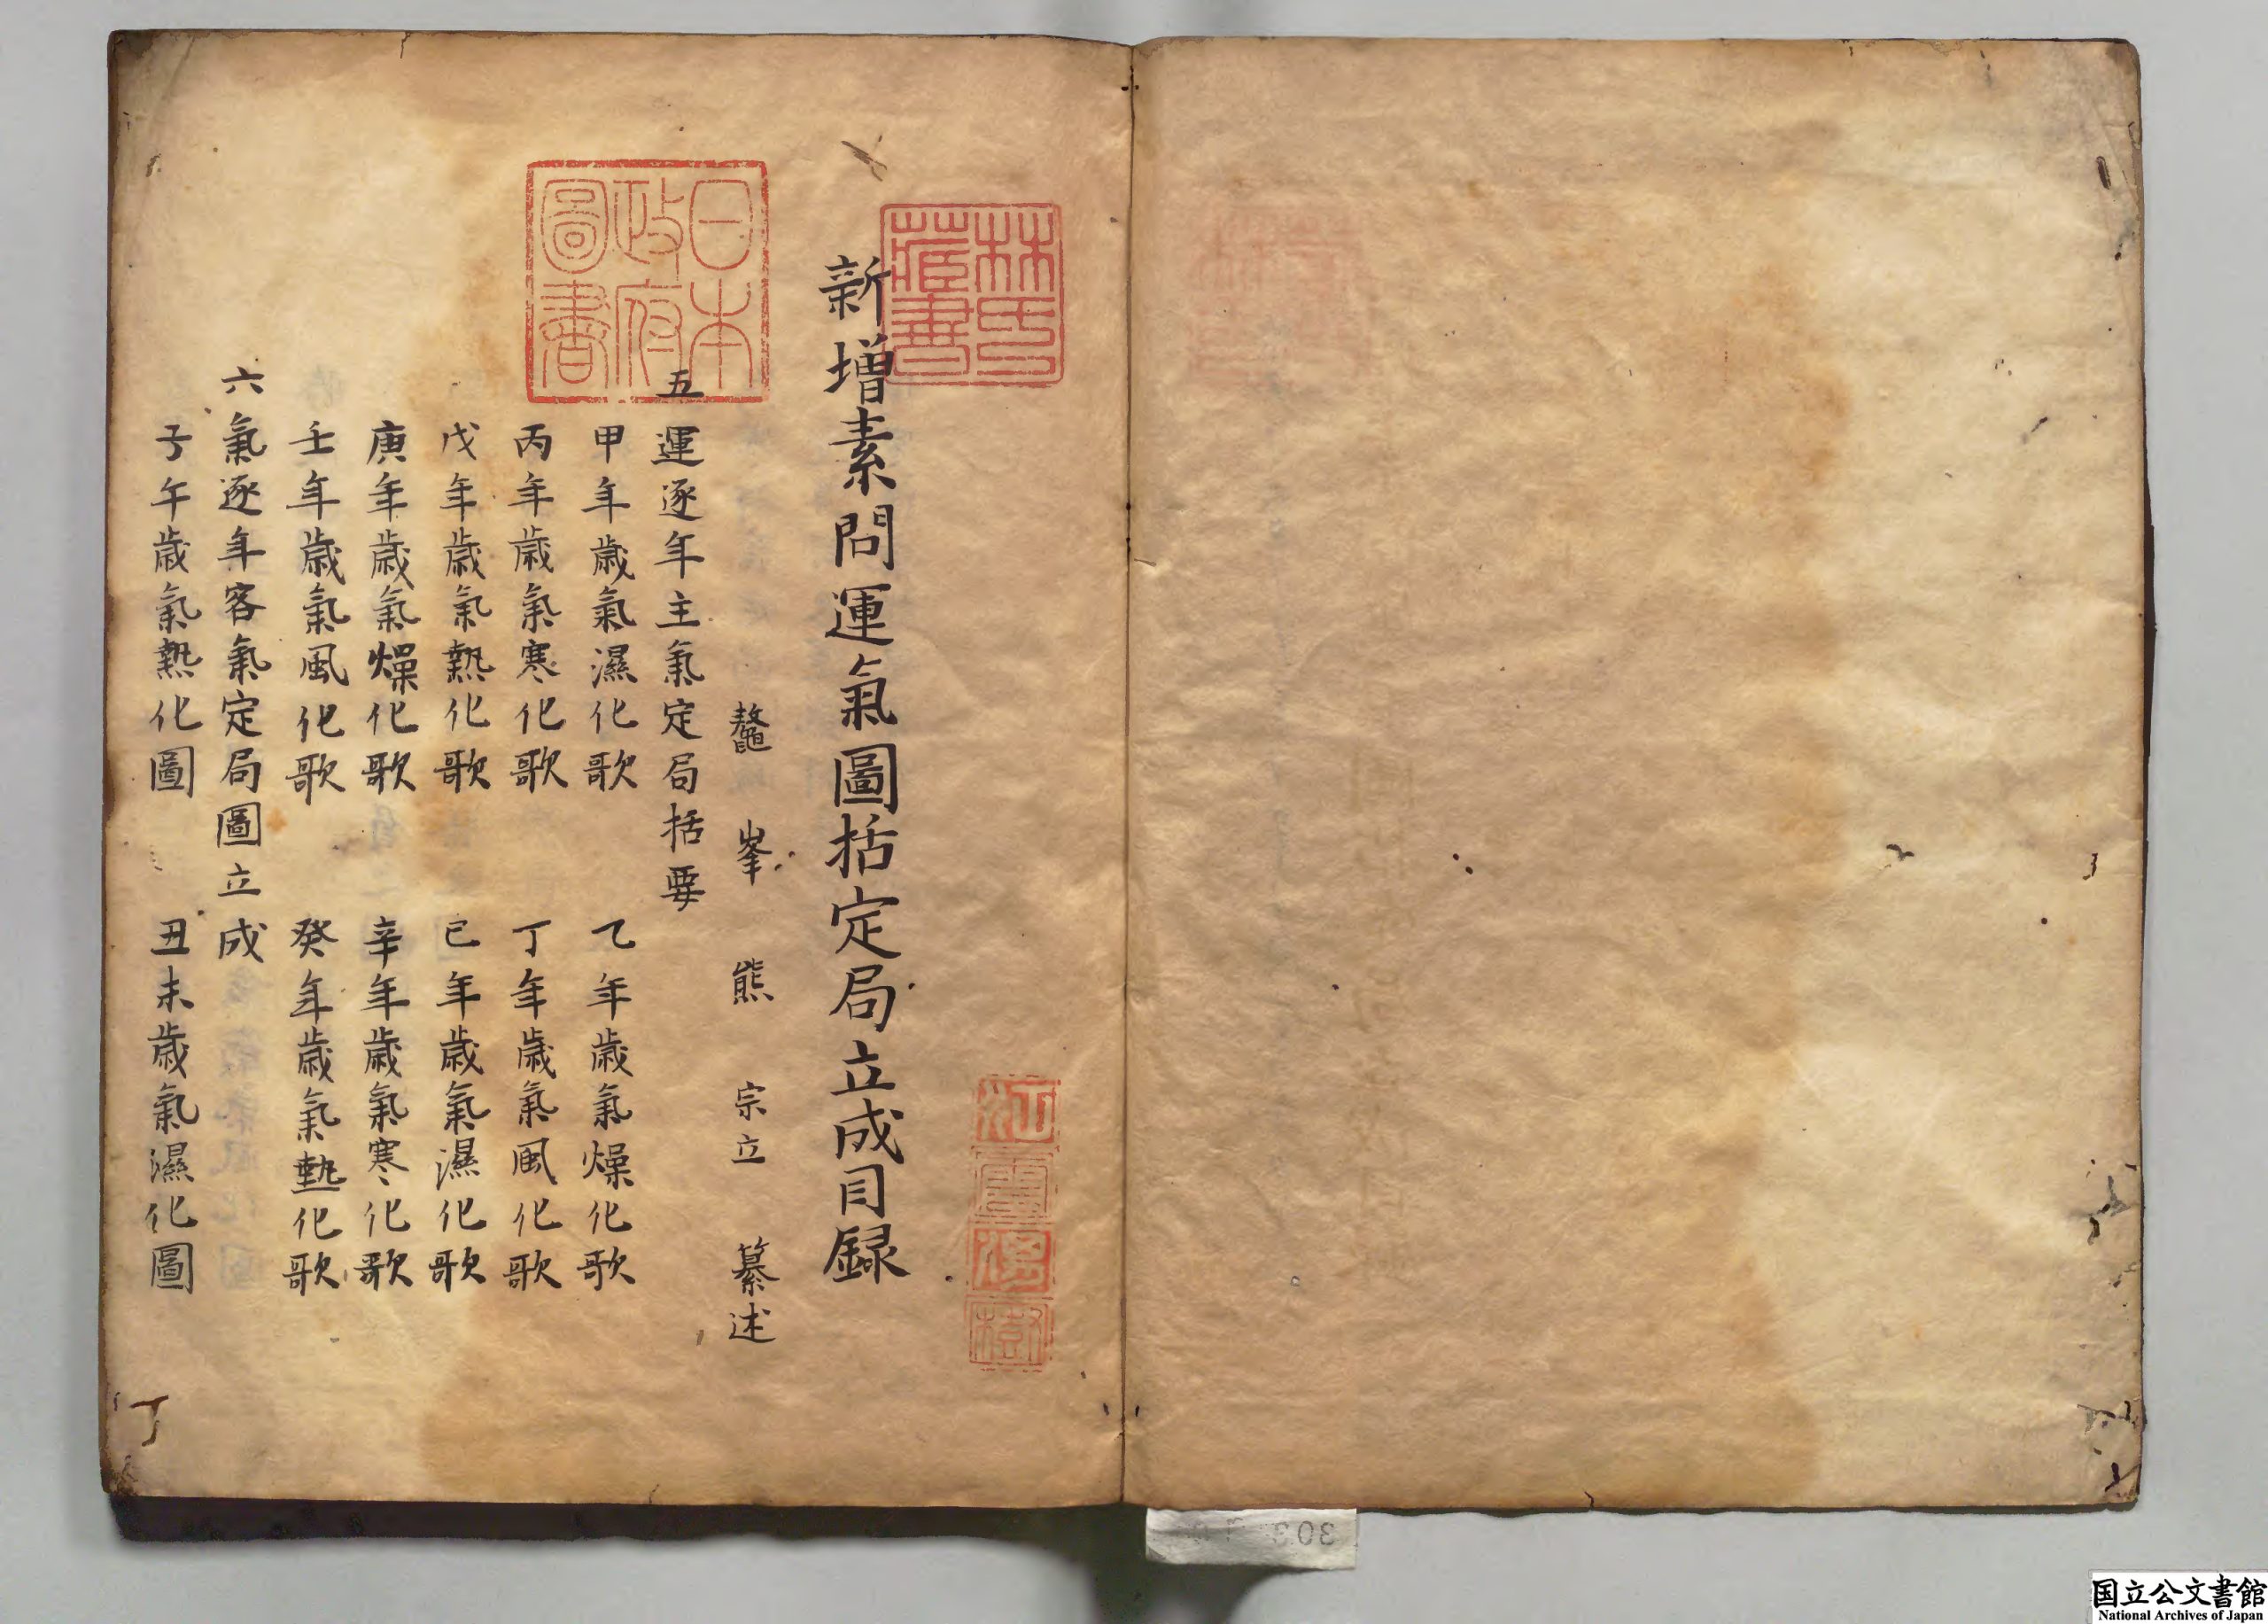 新增素問運氣圖括定局立成目録
鼇峯熊宗立纂述
五運逐年主氣定局括要
甲年歲氣濕化歌 乙年歲氣燥化歌
丙年歲氣寒化歌 丁年歲氣風化歌
戊年歲氣熱化歌 已年歲氣濕化歌
庚年歲氣燥化歌 辛年歲氣寒化歌
壬年歲氣風化歌 癸年歲氣熱化歌
六氣逐年客氣定局圖立成
子午歲氣熱化圖 丑未歲氣濕化圖
丁
林氏藏書
日本政府圖書
江雲渭樹
303
国立公文書館
National Archives of Japan